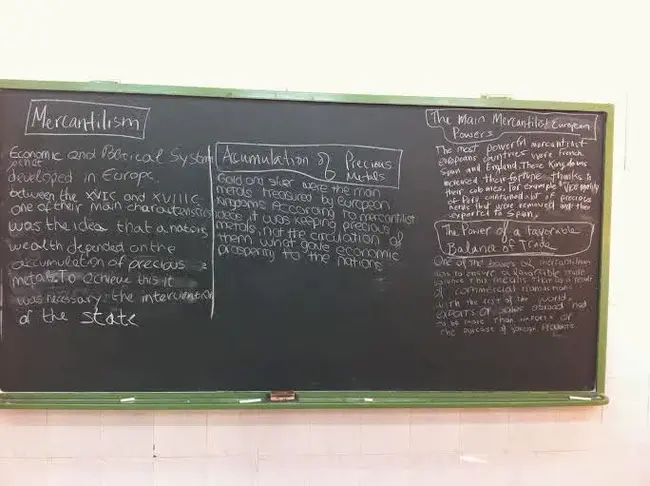 Mercantilism
Economic and Political System
developed in Europe
between the XVIC and XVIIIC
one of their main characteristics
was the idea that a nations
wealth depended on the
accumulation of precious
metals. To achieve this it
was necessary the intervention
of the state
Acumulation of Precious
Metals
Gold and silver were the main
metals treasured by european
Kingdoms. According to mercantilist
ideas, it was keeping precious
metals, not the circulation of
them what gave economic
prosperity to the nations
The Main Mercantilist European
Powers
The most powerful mercantilist
europeans countries were French,
Spain and England. These Kingdoms
increased their fortune thanks to
their colonies. For example
of Perú a lot of precious
metals that were removed and then
exported to Spain.
The Power of a Favorable
Balance of Trade
One of the of mercantilism
was to ensure a favorable trade
balance. This means that as a result
of commercial transactions
with the rest of the world,
exports or sales abroad had
to be more than imports or
the purchase of foreign products.